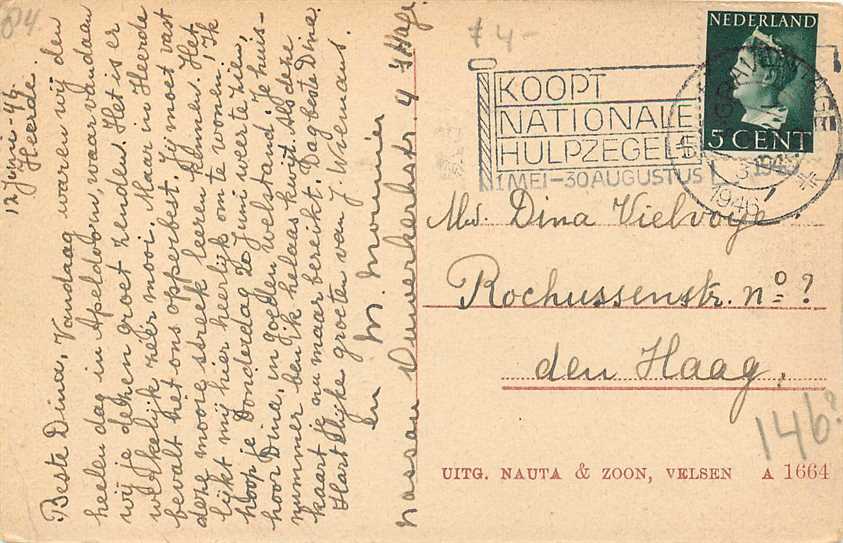 84.
12 Juni - 46.
Heerde.
Beste Dina, Vandaag waren wij den
heelen dag in Apeldoorn, waar vandaan
wij je dezen groet zenden. Het is er
werkelijk zéér mooi. Maar in Heerde
bevalt het ons opperbest. Jij moet vast
deze mooie streek leeren kennen. Het
lijkt mij hier heerlijk om te wonen! Ik
hoop je Donderdag 20 Juni weer te zien,
hoor Dina, in goeden welstand. Je huis-
nummer ben ik helaas kwijt. Als deze
kaart je nu maar bereikt. Dag beste Dina.
Hartelijke groeten van J. Wiemans.
en M. Mounier
Nassau Ouwerkerkstr 4 Hage
f 4-
KOOPT
NATIONALE
HULPZEGELS
1 MEI-30 AUGUSTUS
NEDERLAND
5 CENT
1946
Mej. Dina Vielvoye
Rochussenstr. no ?
den Haag.
146?
UITG. NAUTA & ZOON, VELSEN A 1664